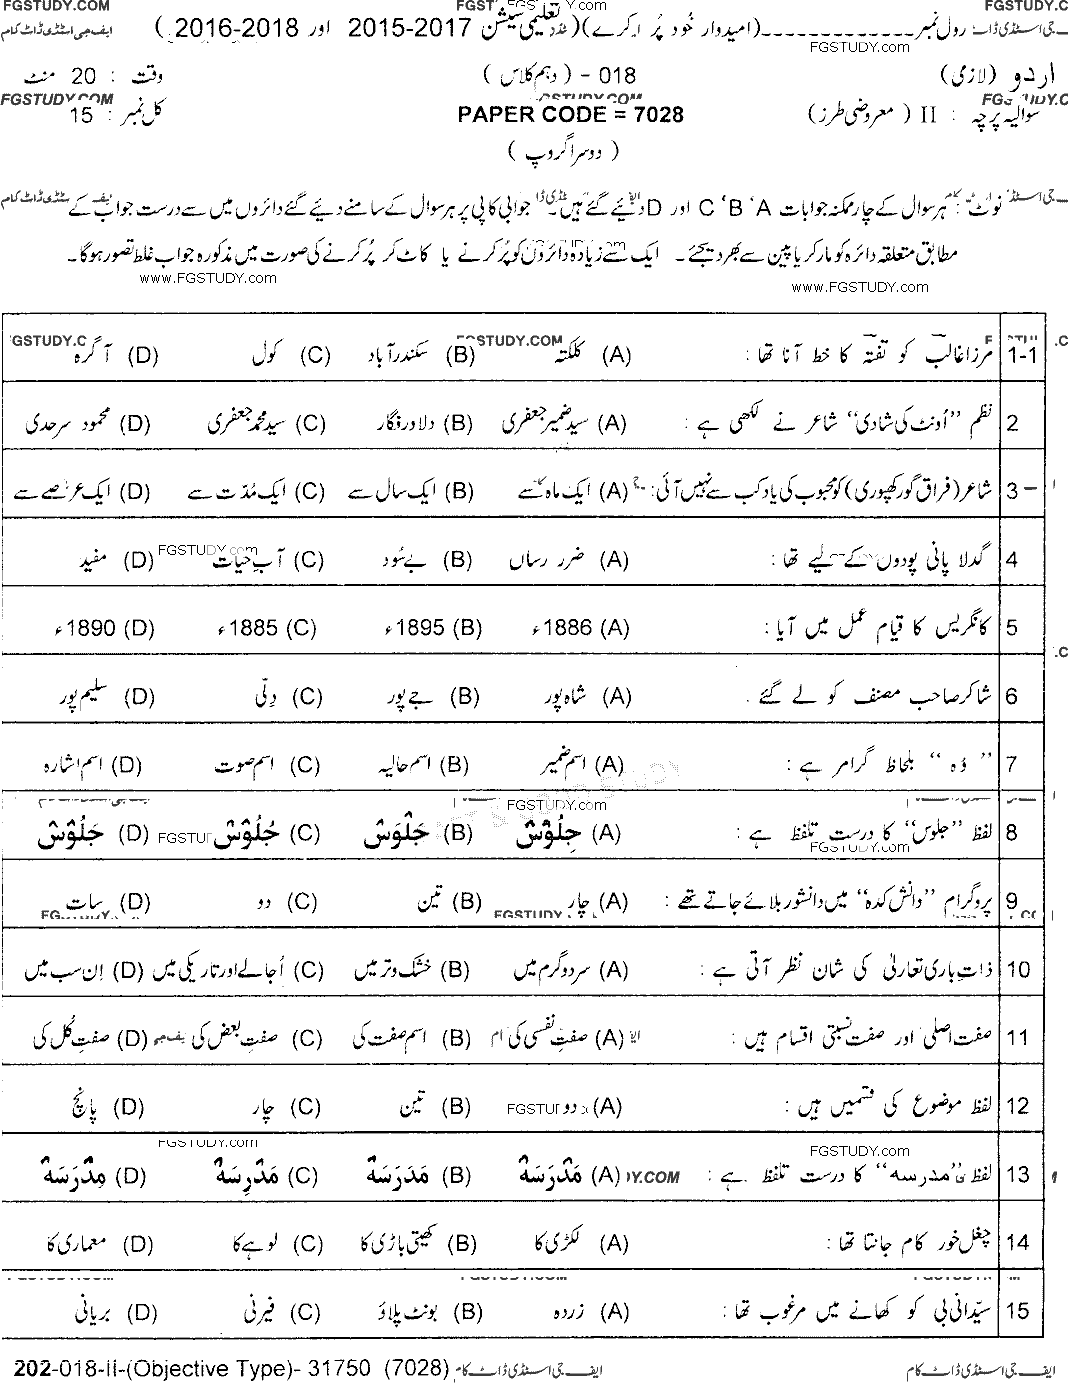 FGSTUDY.COM FGSTUDY.com FGSTUDY.C
رول نمبر۔۔۔۔۔۔۔۔۔۔۔۔۔(امیدوار خود پُر کرے)(تعلیمی سیشن 2017-2015 اور 2018-2016) ایف جی اسٹڈی ڈاٹ کام
FGSTUDY.com
اردو (لازمی) 018 - (دہم کلاس) وقت : 20 منٹ
FGSTUDY.COM FGSTUDY.COM
سوالیہ پرچہ : II (معروضی طرز) PAPER CODE = 7028 کل نمبر : 15
(دوسرا گروپ)
نوٹ : ہر سوال کے چار ممکنہ جوابات A ،B ،C اور D دیئے گئے ہیں۔ جوابی کاپی پر ہر سوال کے سامنے دیئے گئے دائروں میں سے درست جواب کے
مطابق متعلقہ دائرہ کو مارکر یا پین سے بھر دیجئے۔ ایک سے زیادہ دائروں کو پُر کرنے یا کاٹ کر پُر کرنے کی صورت میں مذکورہ جواب غلط تصور ہوگا۔
www.FGSTUDY.com www.FGSTUDY.com
1-1 مرزا غالب کو تفتہ کا خط آنا تھا : (A) کلکتہ (B) سکندرآباد (C) کول (D) آگرہ
2 نظم ”اُونٹ کی شادی“ شاعر نے لکھی ہے : (A) سید ضمیر جعفری (B) دلاور فگار (C) سید محمد جعفری (D) محمود سرحدی
3 شاعر (فراق گورکھپوری) کو محبوب کی یاد کب سے نہیں آئی : (A) ایک ماہ سے (B) ایک سال سے (C) ایک مُدّت سے (D) ایک عرصے سے
4 گدلا پانی پودوں کے لیے تھا : (A) ضرر رساں (B) بے سُود (C) آبِ حیات (D) مفید
5 کانگریس کا قیام عمل میں آیا : (A) 1886ء (B) 1895ء (C) 1885ء (D) 1890ء
6 شاکر صاحب مصنف کو لے گئے : (A) شاہ پور (B) جے پور (C) دِلّی (D) سلیم پور
7 ”وُہ“ بلحاظ گرامر ہے : (A) اسم ضمیر (B) اسم حالیہ (C) اسم صوت (D) اسم اشارہ
FGSTUDY.com
8 لفظ ”جلوس“ کا درست تلفظ ہے : (A) جِلُوْسْ (B) جَلْوَسْ (C) جُلُوْسْ (D) جَلُوْسْ
FGSTUDY.com
9 پروگرام ”دانش کدہ“ میں دانشور بلائے جاتے تھے : (A) چار (B) تین (C) دو (D) سات
10 ذاتِ باری تعالیٰ کی شان نظر آتی ہے : (A) سرد و گرم میں (B) خشک و تر میں (C) اُجالے اور تاریکی میں (D) اِن سب میں
11 صفت اصلی اور صفت نسبتی اقسام ہیں : (A) صفتِ نفسی کی (B) اسم صفت کی (C) صفتِ بعض کی (D) صفتِ کُل کی
12 لفظ موضوع کی قسمیں ہیں : (A) دو (B) تین (C) چار (D) پانچ
FGSTUDY.com FGSTUDY.com
13 لفظ ”مدرسہ“ کا درست تلفظ ہے : (A) مَدْرَسَہْ (B) مَدَرَسَہْ (C) مَدْرِسَہْ (D) مِدْرَسَہْ
14 چغل خور کام جانتا تھا : (A) لکڑی کا (B) کھیتی باڑی کا (C) لوہے کا (D) معماری کا
15 سیّدانی بی کو کھانے میں مرغوب تھا : (A) زردہ (B) بونٹ پلاؤ (C) فیرنی (D) بریانی
202-018-II-(Objective Type)- 31750 (7028) ایف جی اسٹڈی ڈاٹ کام ایف جی اسٹڈی ڈاٹ کام